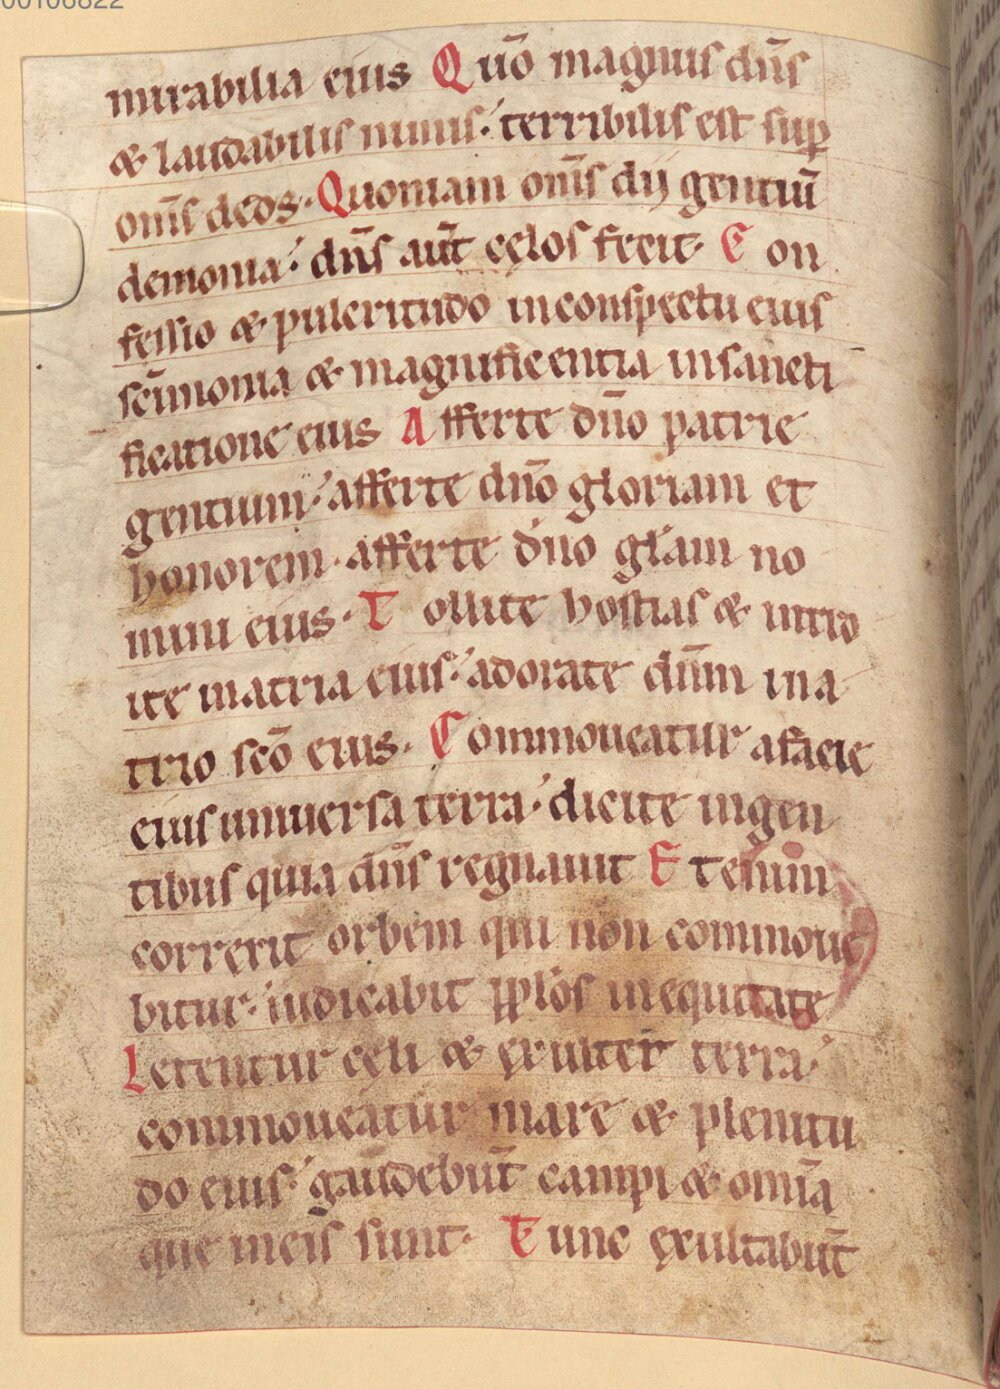 00106822
mirabilia eius Quō magnus dn̄s
& laudabilis nimis: terribilis est sup̱
om̄s deos. Quoniam om̄s dij gentiū
demonia: dn̄s aūt cęlos fecit. Con
fessio & pulcritudo inconspectu eius
sc̄imonia & magnificentia insancti
ficatione eius Afferte dn̄o patrie
gentium: afferte dn̄o gloriam et
honorem. afferte dn̄o gl̄am no
mini eius. Tollite hostias & intro
ite inatria eius: adorate dn̄m ina
trio sc̄o eius. Commoueatur afacie
eius uniuersa terra: dicite ingen
tibus quia dn̄s regnauit Etenim
correxit orbem qui non commoue
bitur: iudicabit pp̱lōs inequitate
Letentur cęli & exultet terra:
commoueatur mare & plenitu
do eius: gaudebūt campi & om̄ia
que ineis sunt. Tunc exultabūt